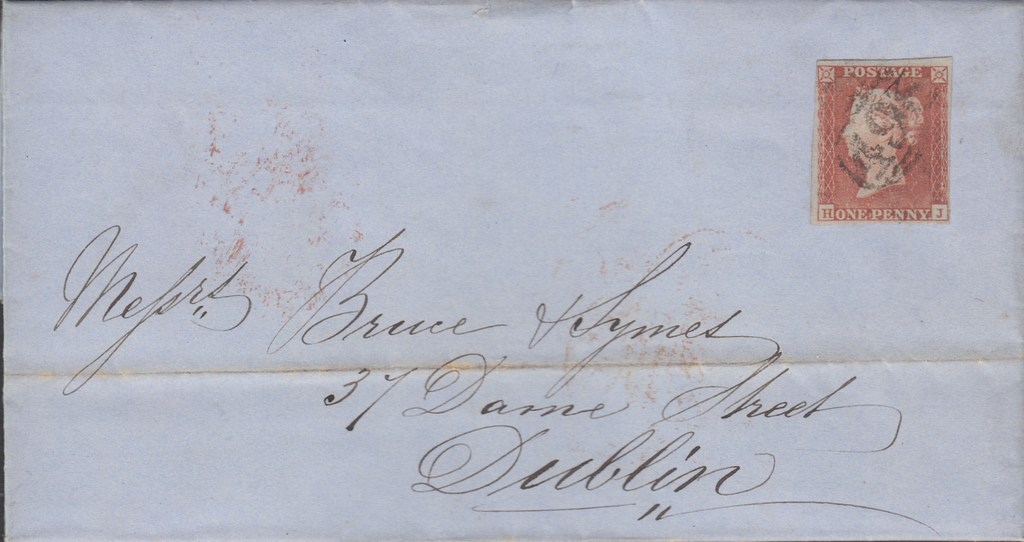 POSTAGE
H ONE PENNY J
Messrs Bruce & Symes
37 Dame Street
Dublin